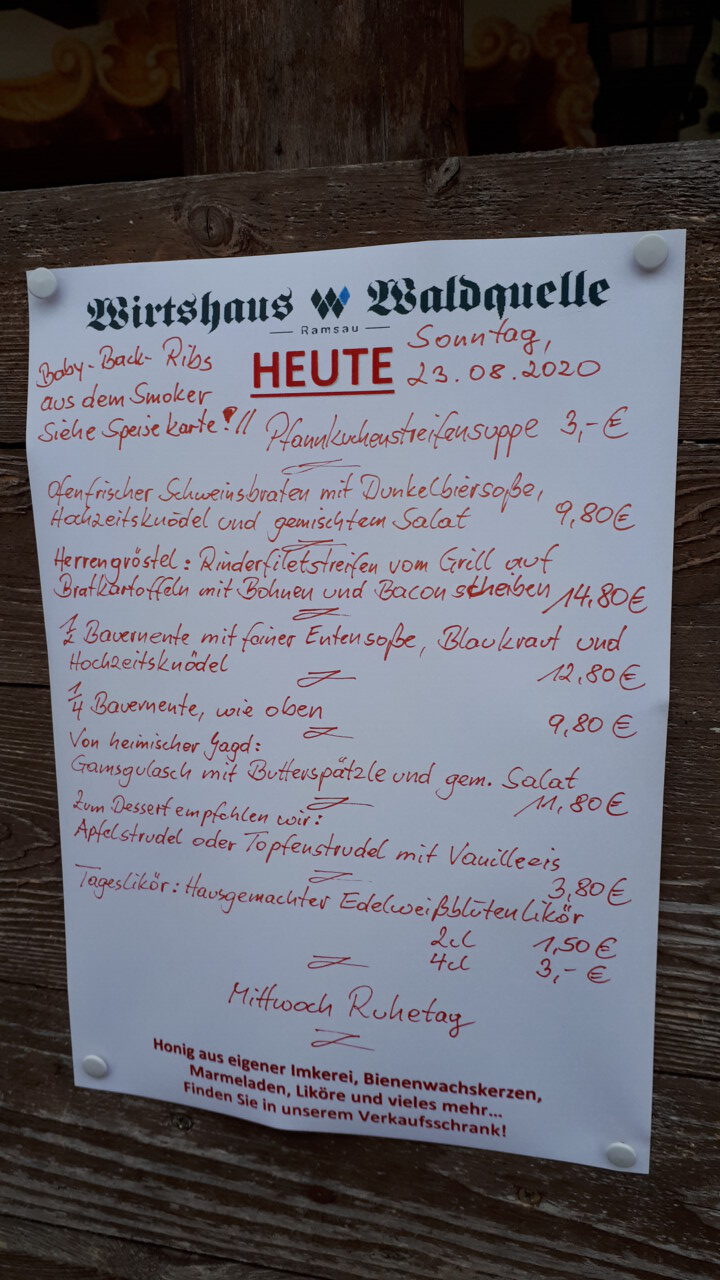 Wirtshaus Waldquelle
Ramsau
Baby-Back-Ribs
aus dem Smoker
Siehe Speisekarte!!!
HEUTE
Sonntag,
23.08.2020
Pfannkuchenstreifensuppe 3,-€
Ofenfrischer Schweinsbraten mit Dunkelbiersoße,
Hochzeitsknödel und gemischtem Salat 9,80€
Herrengröstel: Rinderfiletstreifen vom Grill auf
Bratkartoffeln mit Bohnen und Baconscheiben 14,80€
1/2 Bauernente mit feiner Entensoße, Blaukraut und
Hochzeitsknödel 12,80€
1/4 Bauernente, wie oben 9,80€
Von heimischer Jagd:
Gamsgulasch mit Butterspätzle und gem. Salat
11,80€
Zum Dessert empfohlen wir:
Apfelstrudel oder Topfenstrudel mit Vanilleeis
3,80€
Tageslikör: Hausgemachter Edelweißblütenlikör
2cl 1,50€
4cl 3,-€
Mittwoch Ruhetag
Honig aus eigener Imkerei, Bienenwachskerzen,
Marmeladen, Liköre und vieles mehr...
Finden Sie in unserem Verkaufsschrank!